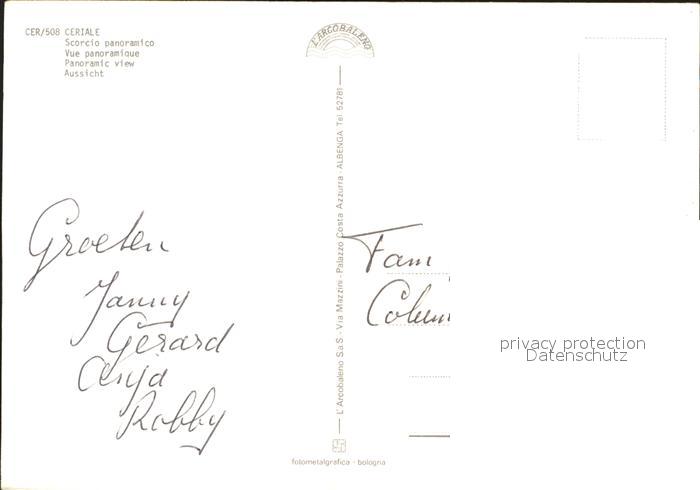 CER/508 CERIALE
Scorcio panoramico
Vue panoramique
Panoramic view
Aussicht
L'ARCOBALENO
L'Arcobaleno S.a.S. - Via Mazzini - Palazzo Costa Azzurra - ALBENGA Tel. 52781
Groeten
Janny
Gerard
Anja
Robby
Fam
privacy protection
Datenschutz
fotometalgrafica - bologna